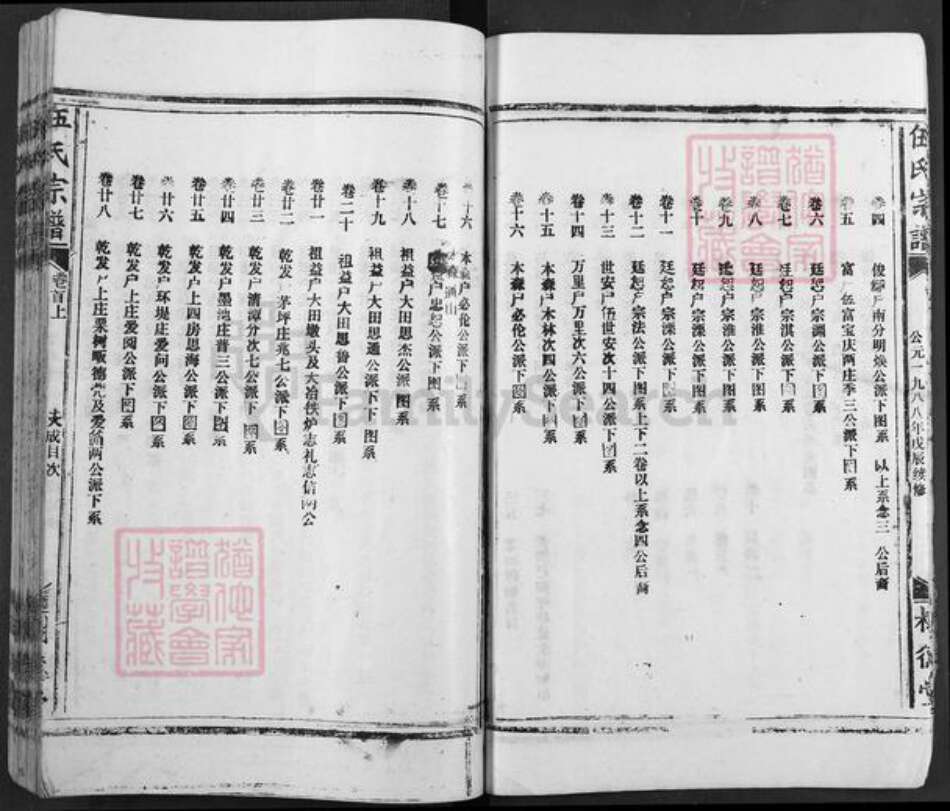 伍氏宗譜
公元一九八八年戊辰续修
卷四 俊 户南分明焕公派下图系 以上系念三公后裔
卷五 富 户伍富宝庆两庄季三公派下图系
卷六 廷恕户宗澜公派下图系
卷七 廷恕户宗淇公派下图系
卷八 廷恕户宗淮公派下图系
卷九 廷恕户宗淮公派下图系
卷十 廷恕户宗溧公派下图系
卷十一 廷恕户宗溧公派下图系
卷十二 廷恕户宗法公派下图系上下二卷以上系念四公后裔
卷十三 世安户伍世安次十四公派下图系
卷十四 万里户万里次六公派下图系
卷十五 本森户木林次四公派下图系
卷十六 本森户必伦公派下图系
伍氏宗譜
卷首上
成目次
卷十六 本森户必伦公派下图系
卷十七 户忠恕公派下图系
卷十八 祖益户大田思杰公派 图系
卷十九 祖益户大田思通公派下下图系
卷二十 祖益户大田思鲁公派下图系
卷廿一 祖益户大田墩头及大冶铁炉志礼志信两公
卷廿二 乾发户茅坪庄兆七公派下图系
卷廿三 乾发户清潭分次七公派下图系
卷廿四 乾发户墨池庄晋三公派下图系
卷廿五 乾发户上四房思海公派下图系
卷廿六 乾发户环堤庄爱问公派下图系
卷廿七 乾发户上庄爱阅公派下图系
卷廿八 乾发户上庄栗树畈德 及爱 两公派下系
猶他家譜學會收藏
猶他家譜學會收藏
FamilySearch